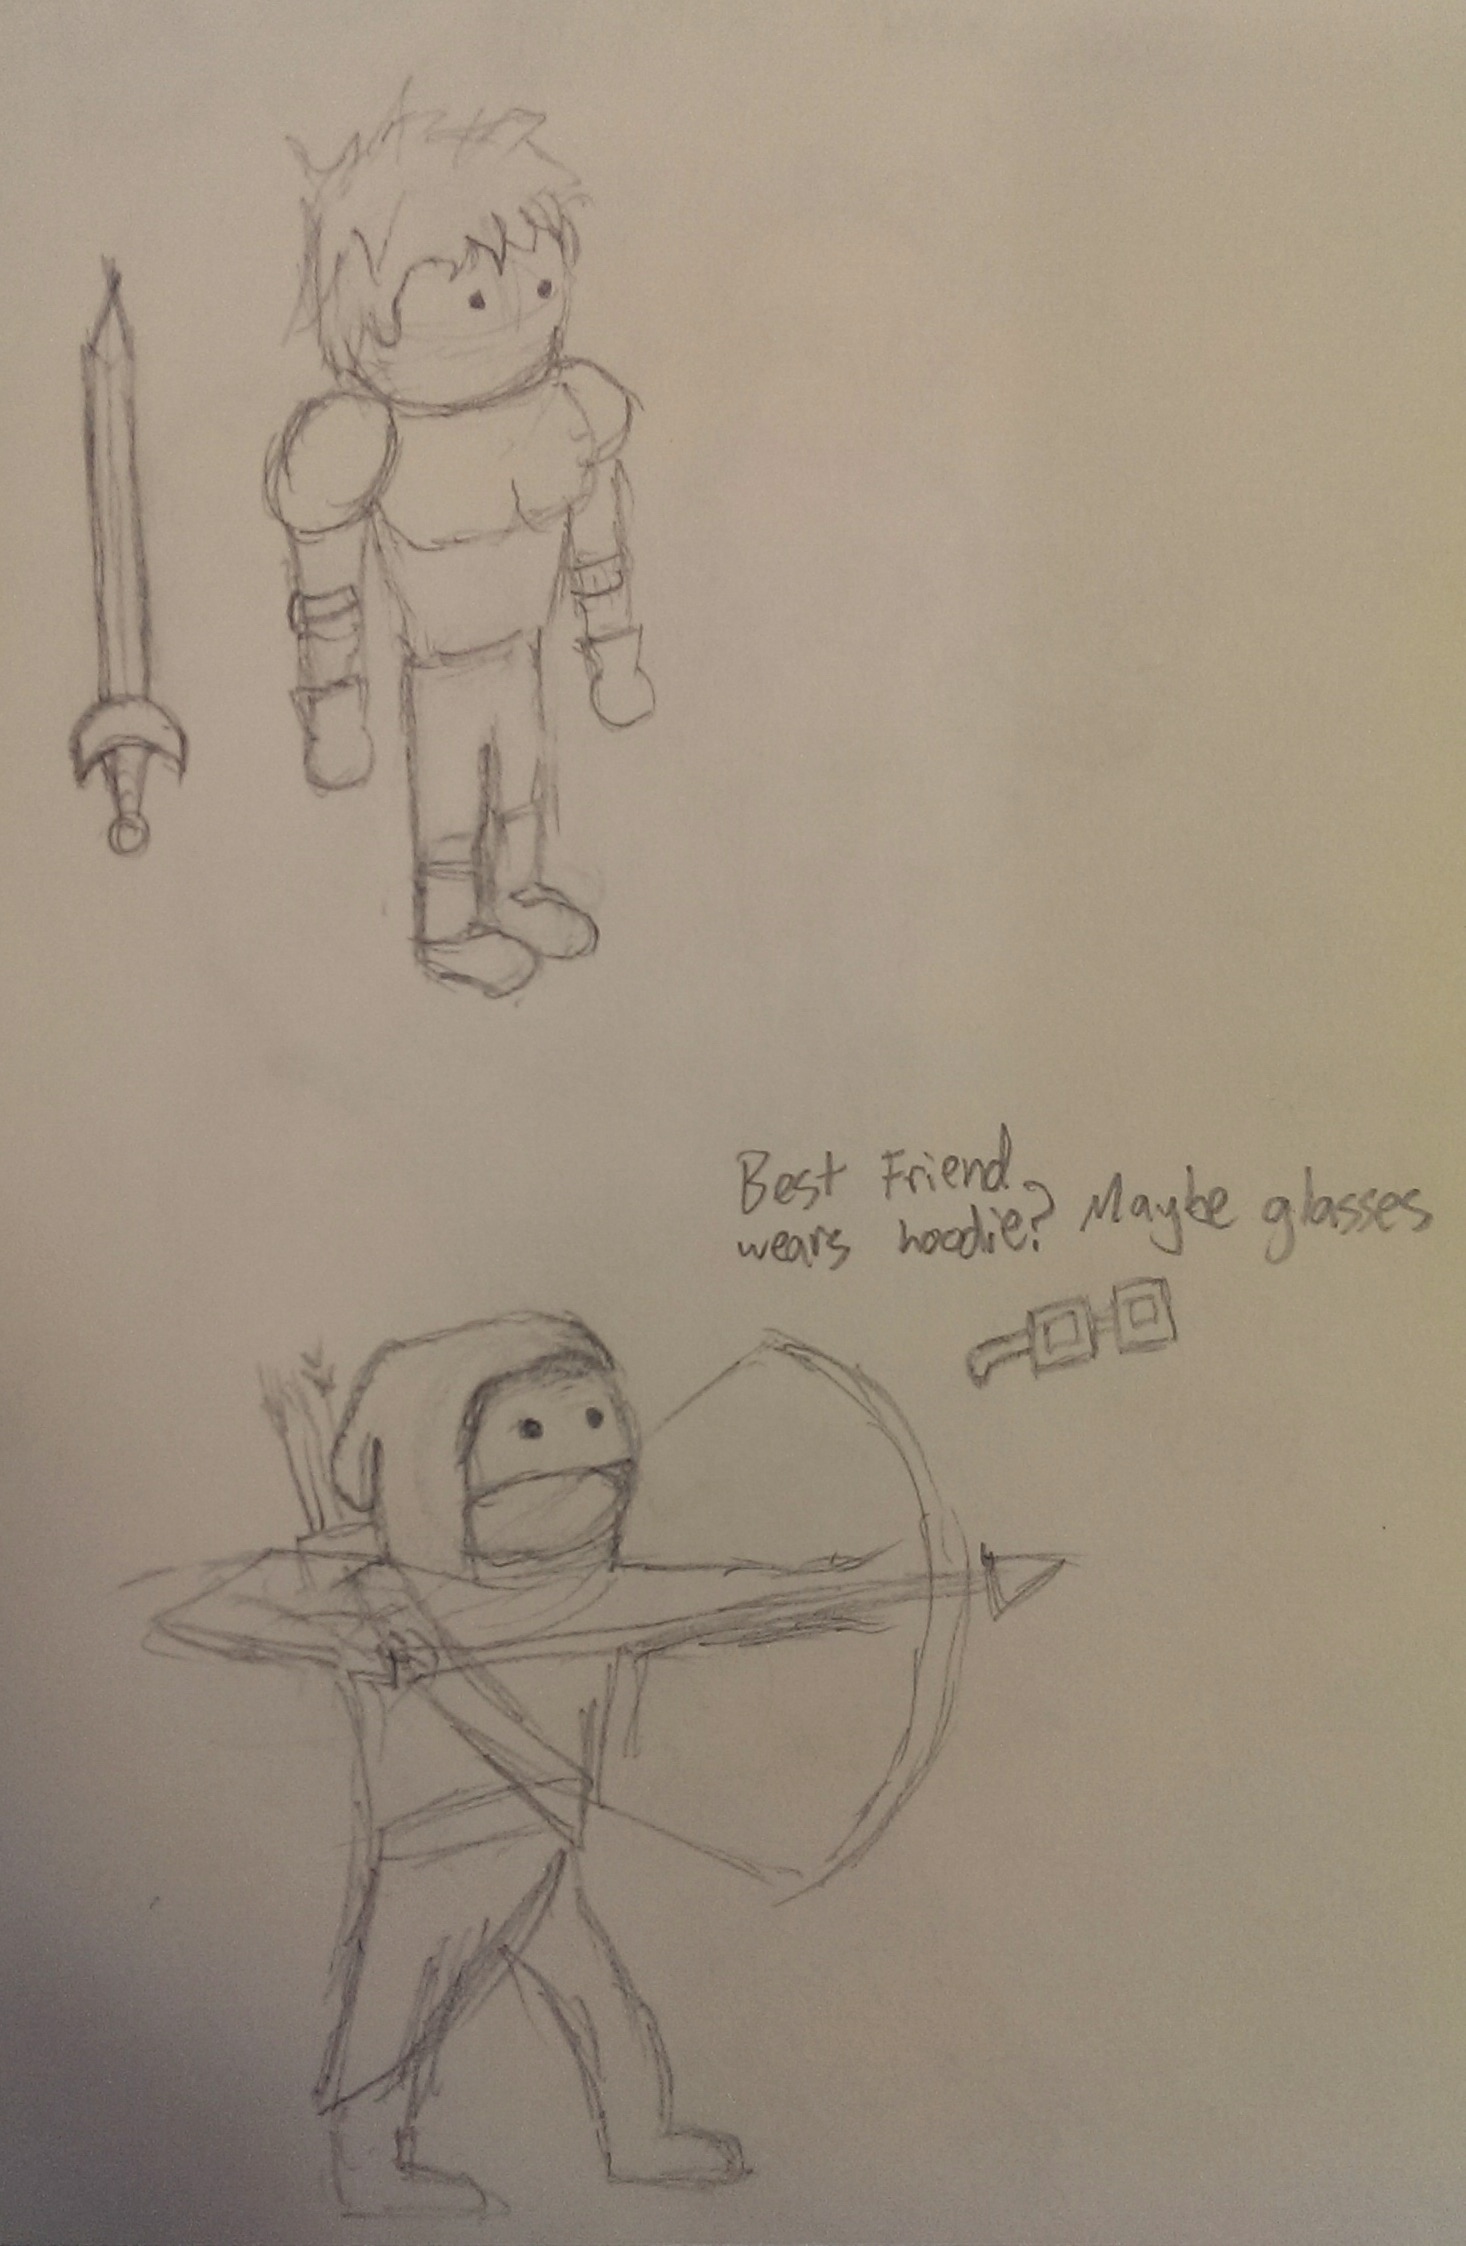 Best Friend
wears hoodie? Maybe glasses